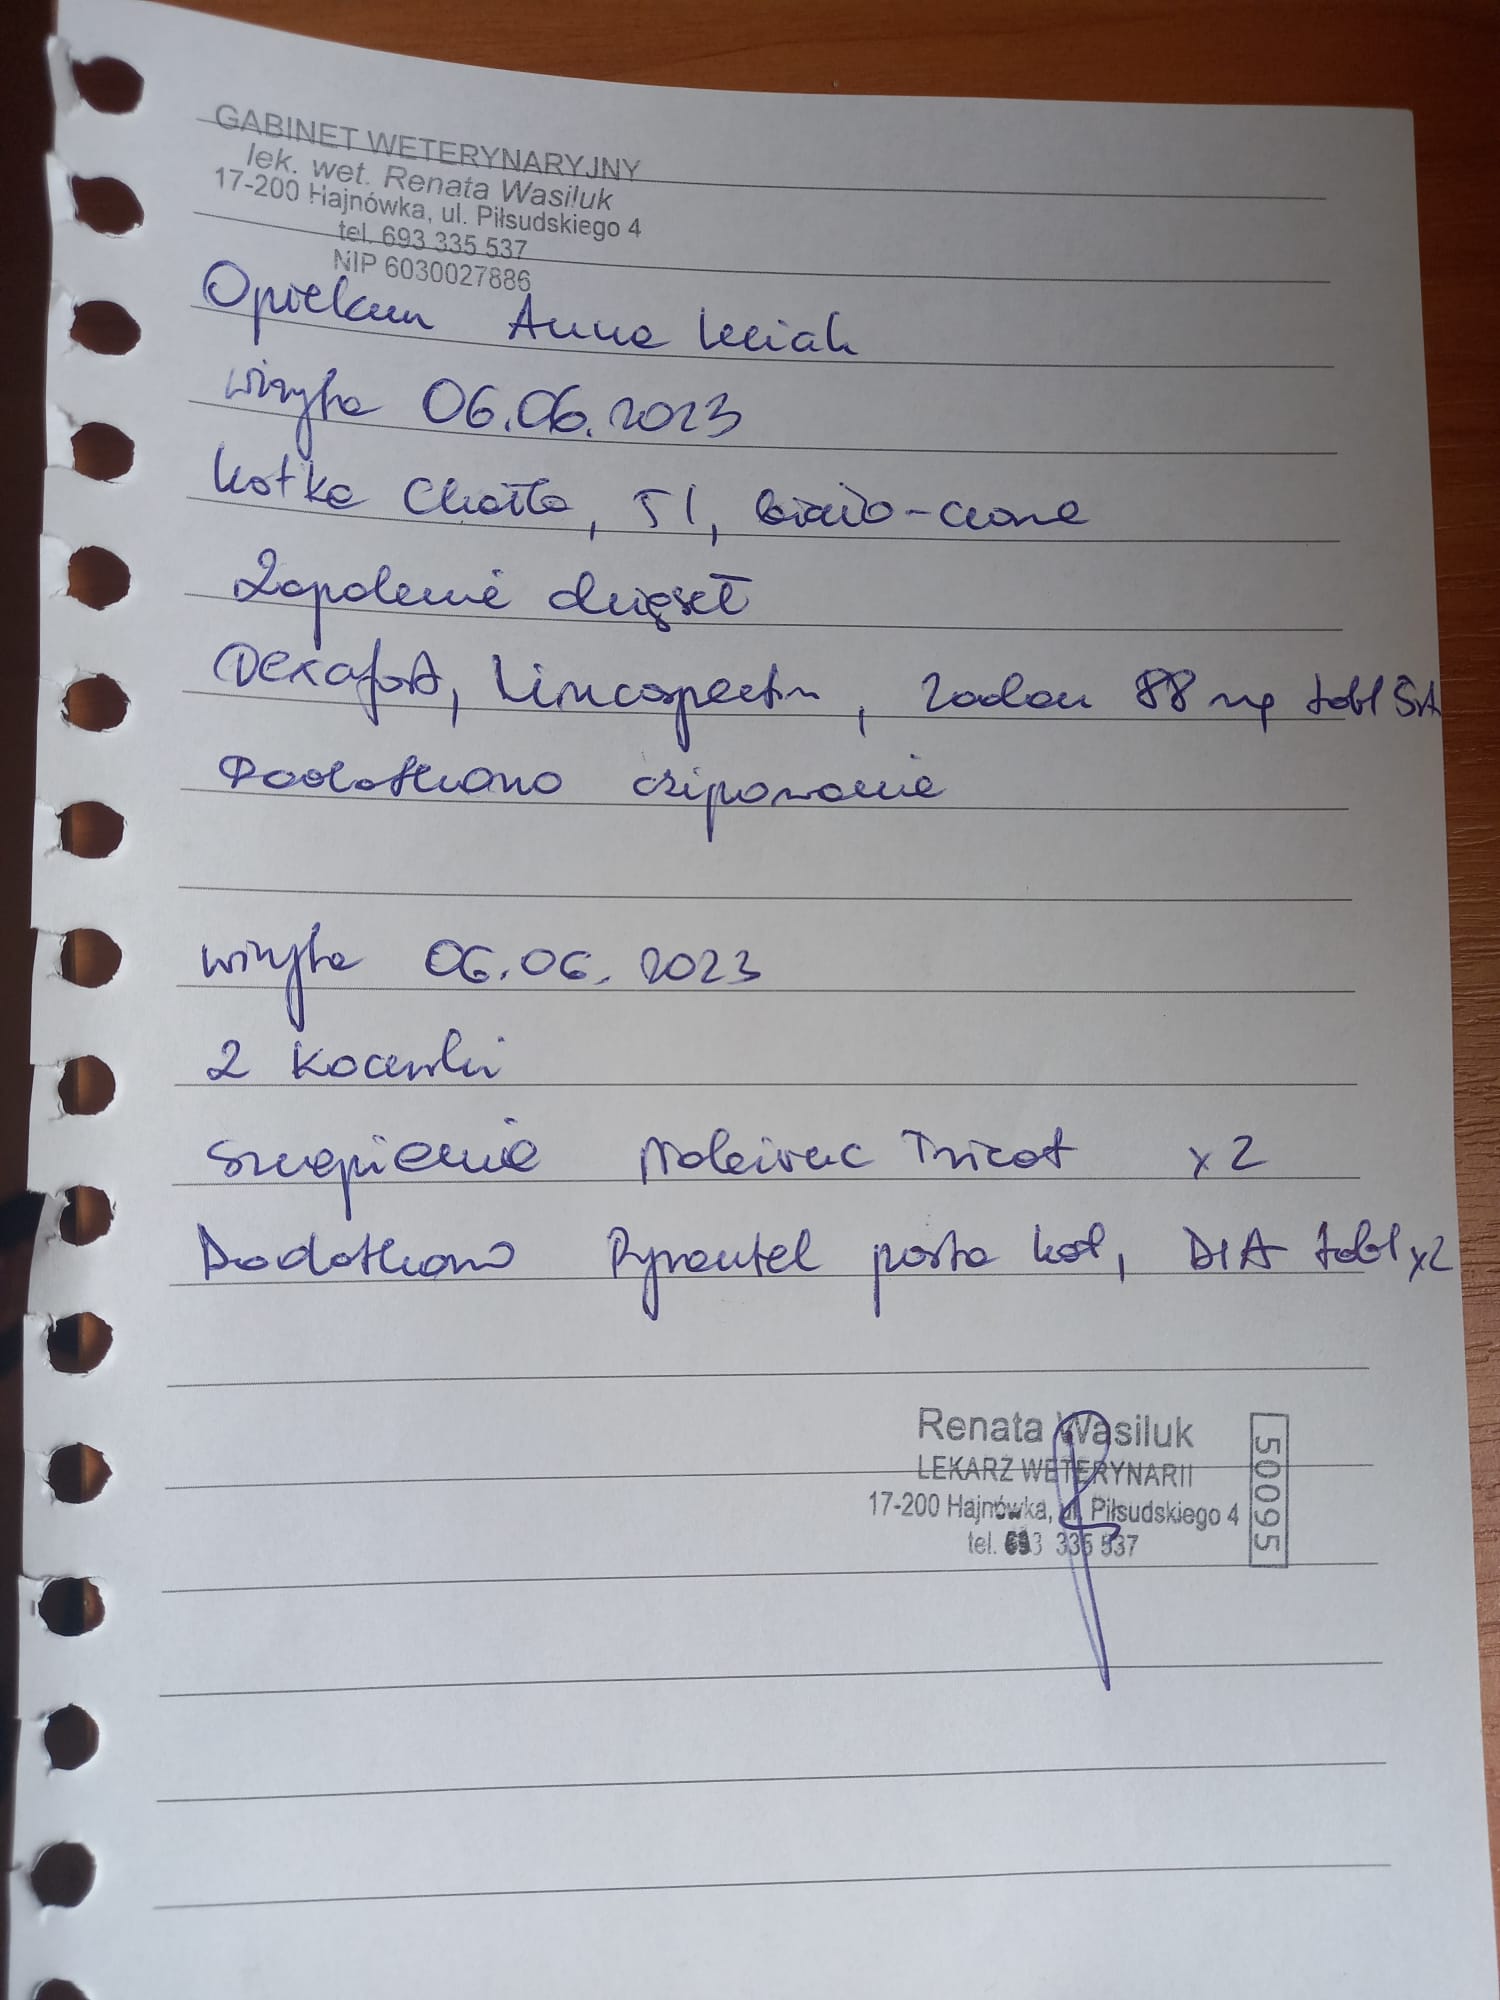 GABINET WETERYNARYJNY
lek. wet. Renata Wasiluk
17-200 Hajnówka, ul. Piłsudskiego 4
tel. 693 335 537
NIP 6030027886
Opiekun Anna
wizyta 06.06.2023
kotka 5 l, biało-czarna
Zapalenie dziąseł
Dexafort, Lincospectin, 88 mg tabl
Dodatkowo czipowanie
wizyta 06.06.2023
2 kocurki
Szczepienie Nobivac Tricat x2
Dodatkowo Pyrantel pasta kot, DIA tabl x2
Renata Wasiluk
LEKARZ WETERYNARII
17-200 Hajnówka, ul. Piłsudskiego 4
tel. 693 335 537
50095